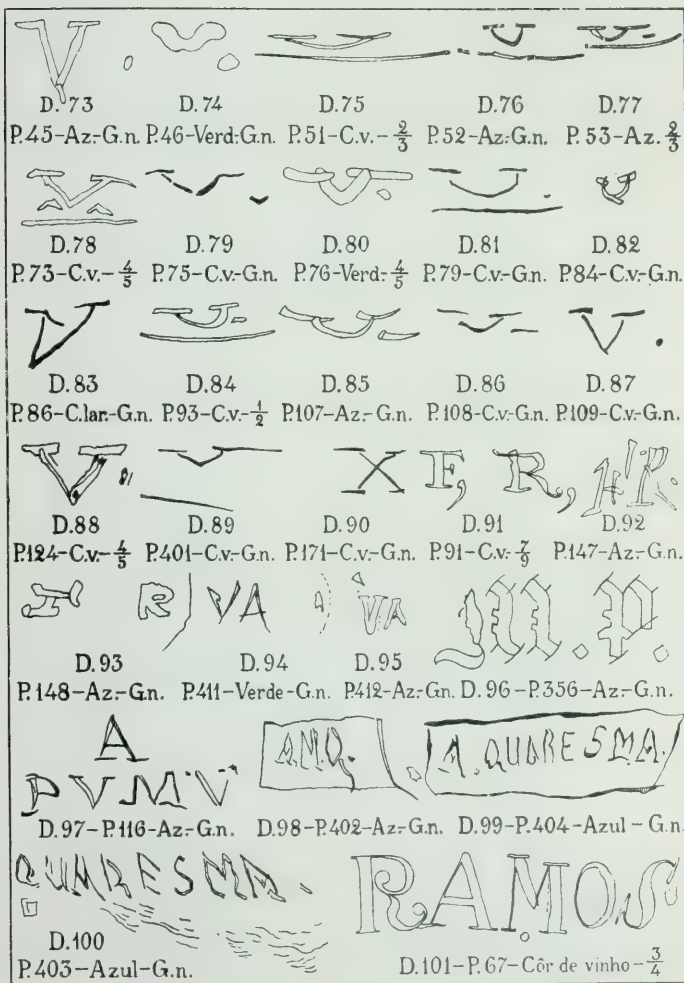 V
D.73 D.74 D.75 D.76 D.77
P.45-Az.-G.n. P.46-Verd:-G.n. P.51-C.v.-2/3 P.52-Az:-G.n. P.53-Az. 2/3
D.78 D.79 D.80 D.81 D.82
P.73-C.v.-4/5 P.75-C.v.-G.n. P.76-Verd:-4/5 P.79-C.v.-G.n. P.84-C.v.-G.n.
V V
D.83 D.84 D.85 D.86 D.87
P.86-C.lar.-G.n. P.93-C.v.-1/2 P.107-Az.-G.n. P.108-C.v.-G.n. P.109-C.v.-G.n.
V X F, R,
D.88 D.89 D.90 D.91 D.92
P.124-C.v.-4/5 P.401-C.v.-G.n. P.171-C.v.-G.n. P.91-C.v.-7/9 P.147-Az.-G.n.
R VA VA M.P.
D.93 D.94 D.95
P.148-Az.-G.n. P.411-Verde-G.n. P.412-Az.-G.n. D.96-P.356-Az.-G.n.
A
P V M V A.M.Q. A.QUARESMA.
D.97-P.116-Az.-G.n. D.98-P.402-Az.-G.n. D.99-P.404-Azul-G.n.
QUARESMA. RAMOS
D.100
P.403-Azul-G.n. D.101-P.67-Côr de vinho-3/4